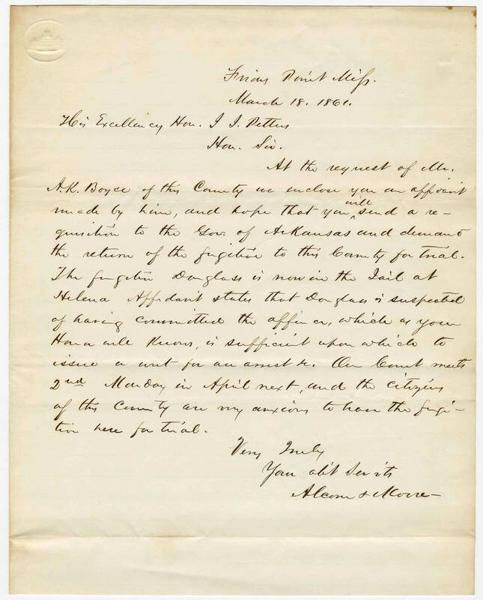 Friars Point Miss.
March 18. 1861.
His Excellency Hon. J J. Pettus
Hon. Sir.
At the request of Mr.
A.K. Boyce of this County we enclose you an affidavit
made by him, and hope that you will send a re-
quisition to the Gov. of Arkansas and demand
the return of the fugitive to this County for trial.
The fugitive Douglass is now in the Jail at
Helena Affidavit states that Douglass is suspected
of having committed the offence, which as your
Honor will Know, is sufficient upon which to
issue a writ for an arrest &c. Our Court meets
2nd Monday in April next, and the citizens
of this County are very anxious to have the fugi-
tive here for trial.
Very Truly
Your obt Servts
Alcorn & Moore